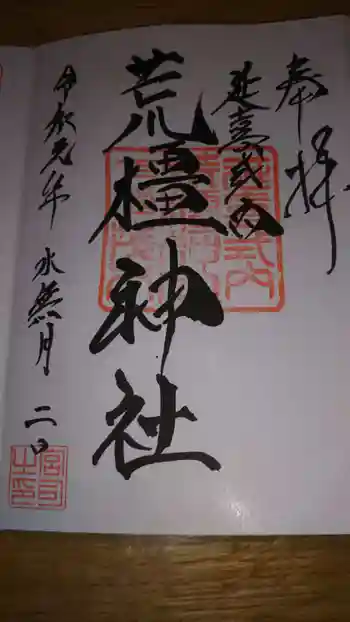 奉拝
延喜式内
荒橿神社
令和元年水無月二日
宮司之印